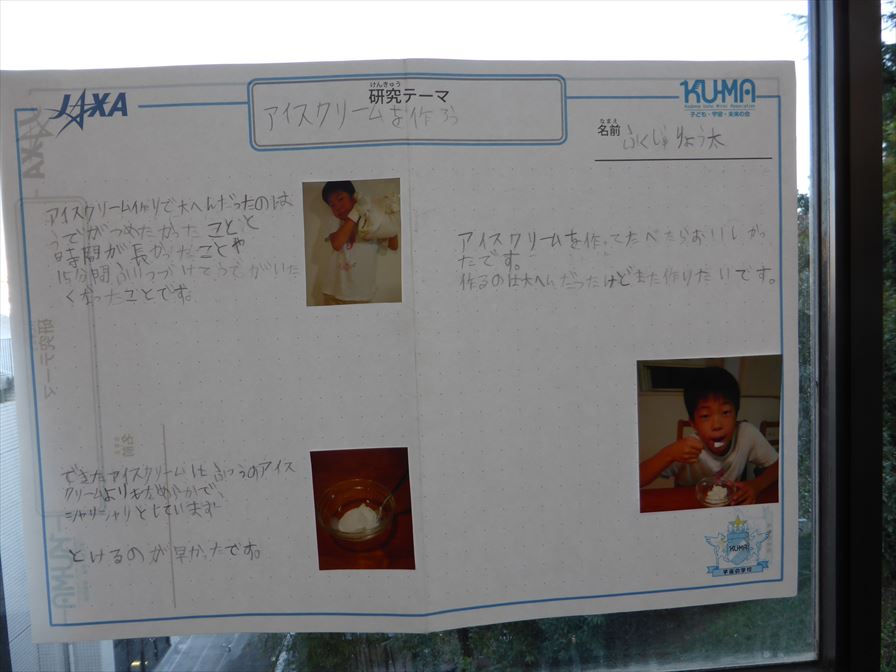 JAXA
けんきゅう
研究テーマ
アイスクリームを作ろう
KU-MA
子ども・宇宙・未来の会
なまえ
名前
ふくしゅ りょう太
アイスクリーム作りで大へんだったのは
うでがつめたかったことと
時間が長かったことや
15分間ふりつづけてうでがいた
くなったことです。
アイスクリームを作ってたべたらおいしかっ
たです。
作るのは大へんだったけどまた作りたいです。
できたアイスクリームはふつうのアイス
クリームよりもなめやかで、
シャリシャリとしています
とけるのが早かったです。
KU-MA
宇宙の学校